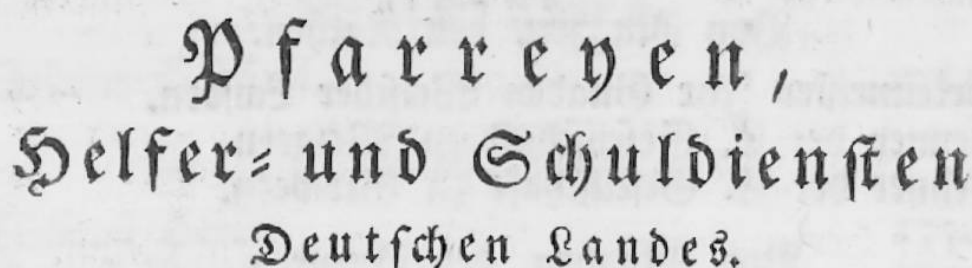 Pfarreyen,
Helfer- und Schuldiensten
Deutschen Landes.